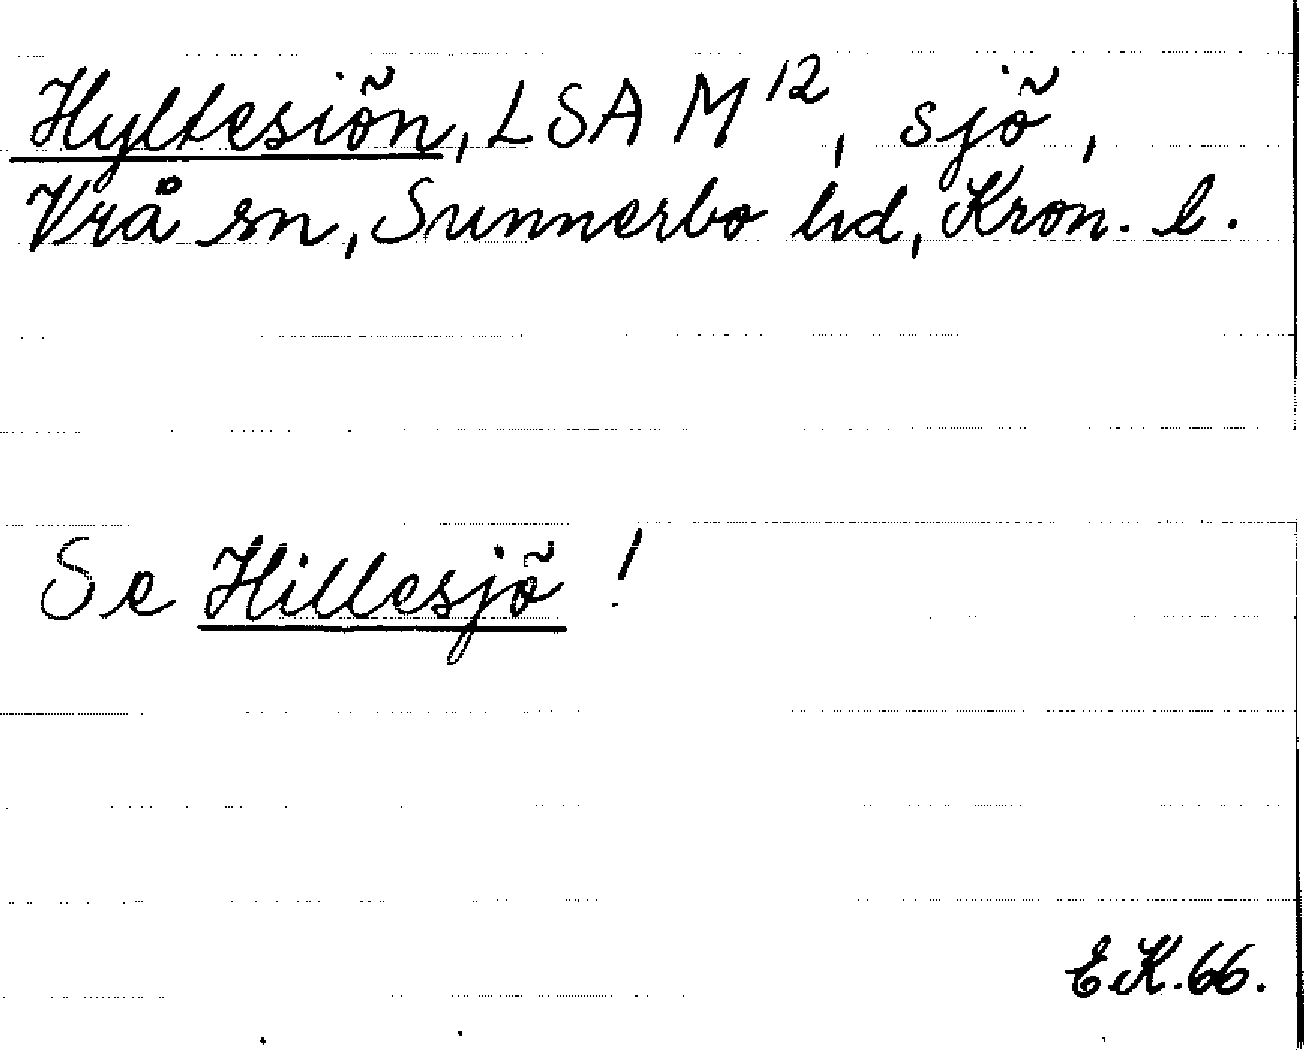 Hyltesiön, LSA M12, sjö,
Vrå sn, Sunnerbo hd, Kron. l.
Se Hillesjö!
E.K.66.